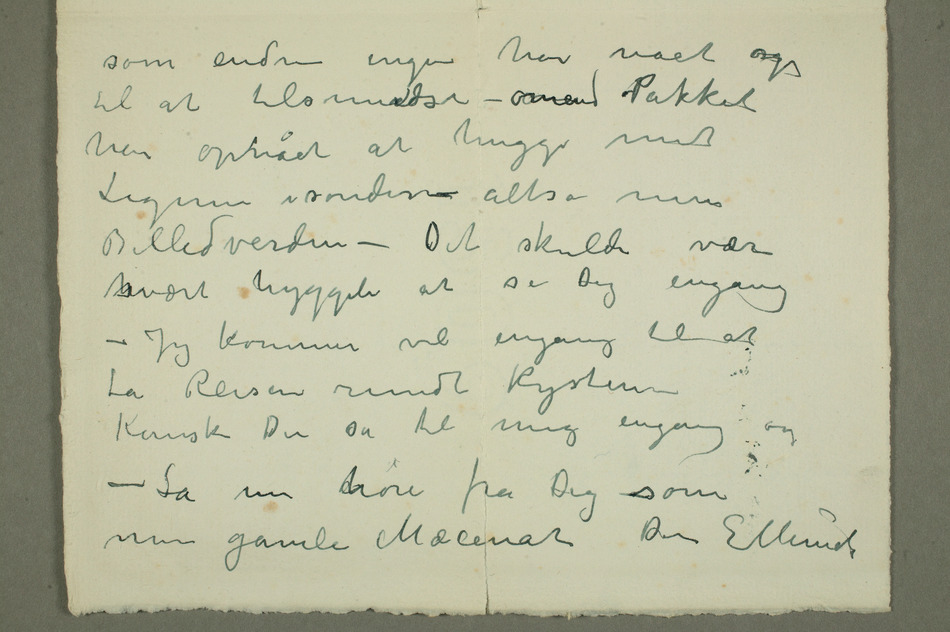 som endnu ingen har naaet og
til at tilsmudse – omend Pakket
har opnået at hugge mit
Legeme isønder altså min
Billedverden – Det skulde være
hvært hyggeli at se Dig engang
– Jeg kommer vel engang til at
ta Reisen rundt Kysten
Kanske Du så til mig engang og
– La nu höre fra Dig som
min gamle Mæcenat Din EMunch